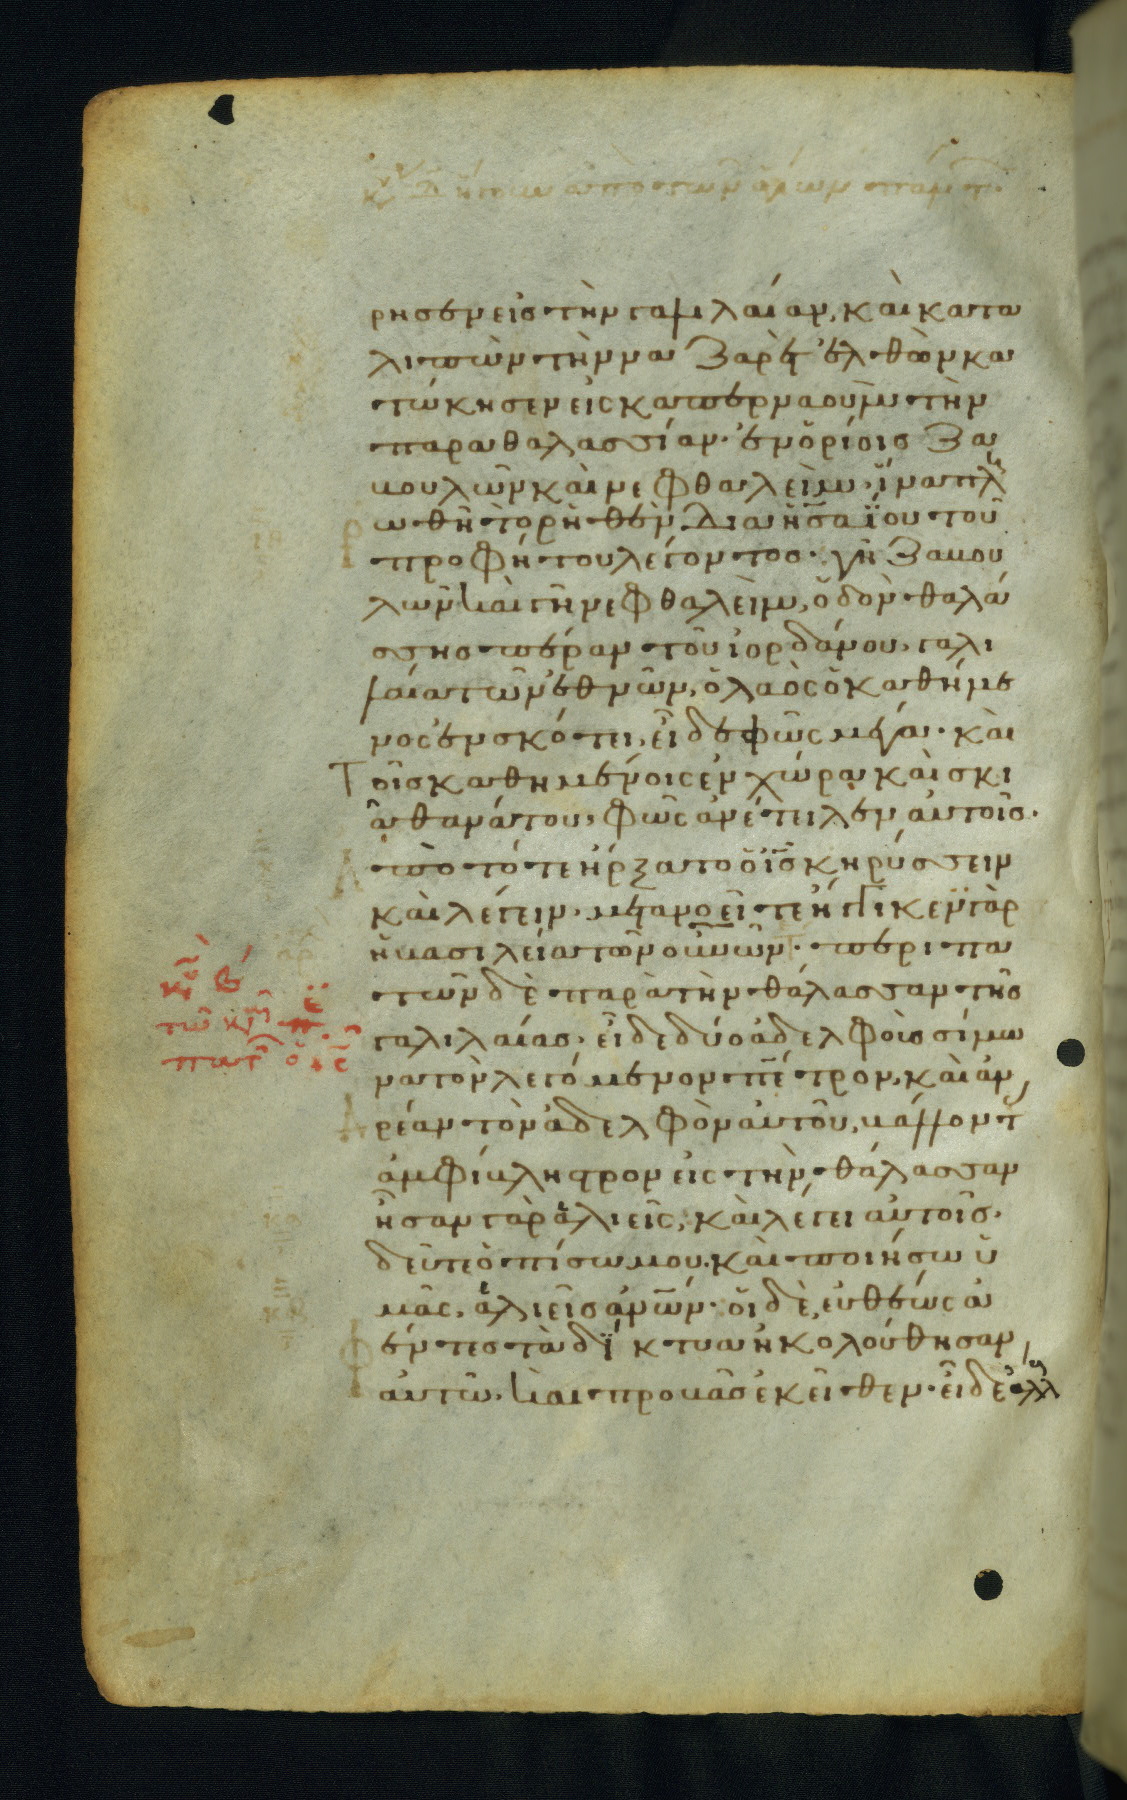 ρησεν εἰς τὴν γαλιλαίαν, καὶ κατα
λιπὼν τὴν ναζαρὲτ ἐλθὼν κα
τώκησεν εἰς καπερναοὺμ τὴν
παραθαλασσίαν· ἐν ὁρίοις ζα
βουλὼν καὶ νεφθαλεὶμ· ἵνα πλη
ωθῆ τὸ ρηθὲν διὰ ἠσαΐου τοῦ
προφήτου λέγοντος· γῆ ζαβου
λὼν καὶ γῆ νεφθαλεὶμ, ὁδὸν θαλά
σσης πέραν τοῦ ἰορδάνου, γαλι
λαία τῶν ἐθνῶν, ὁ λαὸς ὁ καθήμε
νος ἐν σκότει, εἶδε φῶς μέγα· καὶ
τοῖς καθημένοις ἐν χώρᾳ καὶ σκι
ᾷ θανάτου, φῶς ἀνέτειλεν αὐτοῖς·
ἀπὸ τότε ἤρξατο ὁ ἰς κηρύσσειν
καὶ λέγειν· μετανοεῖτε ἤγγικεν γὰρ
ἡ βασιλεία τῶν οὐνῶν· περιπα
τῶν δὲ παρὰ τὴν θάλασσαν τῆς
γαλιλαίας· εἶδε δύο ἀδελφοὺς σίμω
να τὸν λεγόμενον πέτρον, καὶ ἀν
ρέαν τὸν ἀδελφὸν αὐτοῦ, βάλλοντ
ἀμφίβληστρον εἰς τὴν θάλασσαν
ἦσαν γὰρ ἁλιεῖς, καὶ λέγει αὐτοῖς·
δεῦτε ὀπίσω μου· καὶ ποιήσω ὑ
μᾶς, ἁλιεῖς ἀνων· οἱ δὲ, εὐθέως ἀ
φέντες τὰ δίκτυα ἠκολούθησαν
αὐτῶ· καὶ προβὰς ἐκεῖθεν· εἶδε ἀλλ